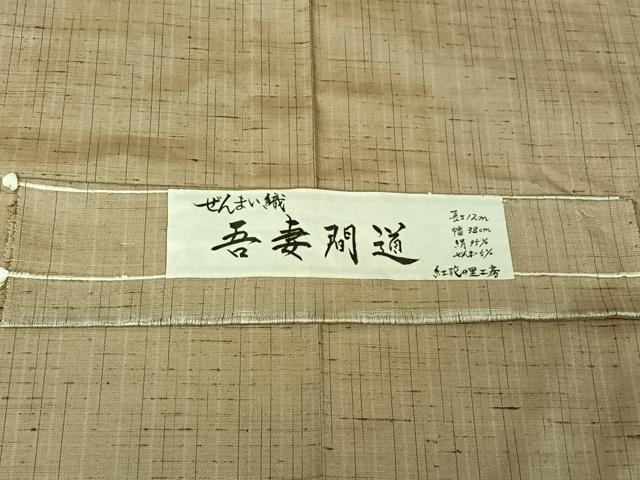 ぜんまい織
吾妻間道
長さ12m
幅 38cm
絹 95%
ぜんまい5%
紅花の里工房